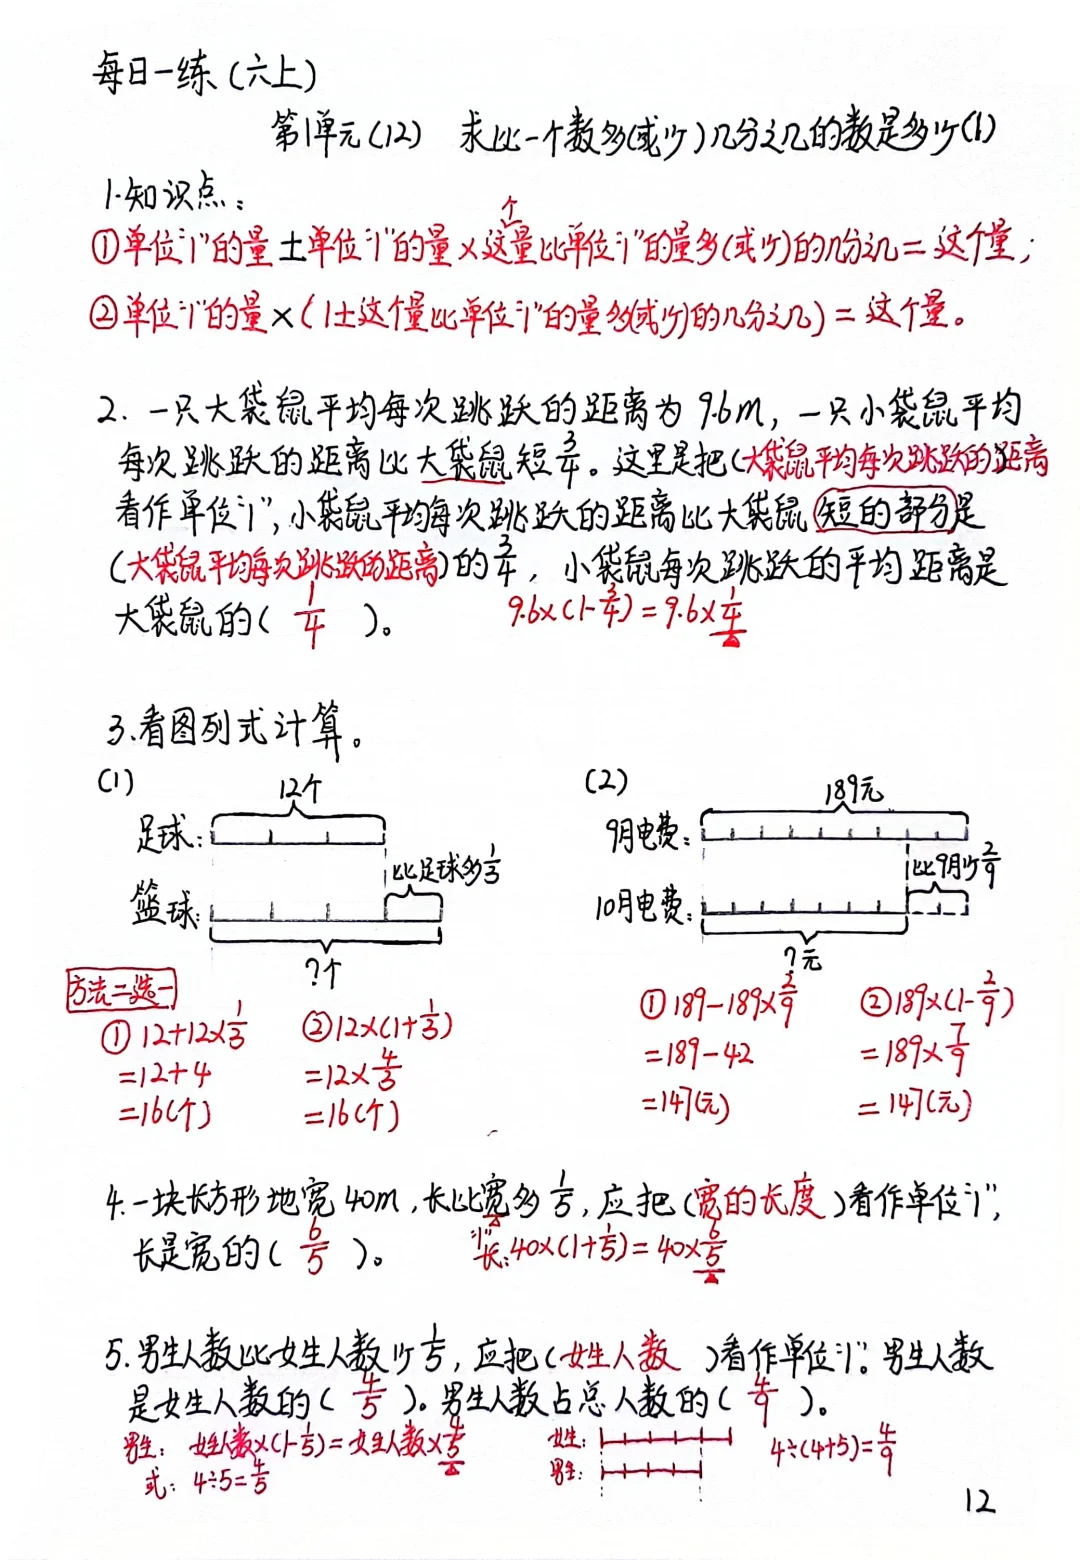 每日一练(六上)
第1单元(12) 求比一个数多(或少)几分之几的数是多少(1)
1.知识点:
①单位"1"的量±单位"1"的量×这个量比单位"1"的量多(或少)的几分之几=这个量;
②单位"1"的量×(1±这个量比单位"1"的量多(或少)的几分之几)=这个量。
2. 一只大袋鼠平均每次跳跃的距离为9.6m,一只小袋鼠平均
每次跳跃的距离比大袋鼠短3/4。这里是把(大袋鼠平均每次跳跃的距离
看作单位"1",小袋鼠平均每次跳跃的距离比大袋鼠短的部分是
(大袋鼠平均每次跳跃的距离)的3/4,小袋鼠每次跳跃的平均距离是
大袋鼠的( 1/4 )。 9.6×(1-3/4)=9.6×1/4
3.看图列式计算。
(1) 12个
足球:
比足球多1/3
篮球:
?个
(2) 189元
9月电费:
比9月少2/9
10月电费:
?元
方法二选一
①12+12×1/3 ②12×(1+1/3)
=12+4 =12×4/3
=16(个) =16(个)
①189-189×2/9 ②189×(1-2/9)
=189-42 =189×7/9
=147(元) =147(元)
4.一块长方形地宽40m,长比宽多1/5,应把(宽的长度)看作单位"1",
长是宽的( 6/5 )。 "1" 长:40×(1+1/5)=40×6/5
5.男生人数比女生人数少1/5,应把(女生人数 )看作单位"1"。男生人数
是女生人数的( 4/5 )。男生人数占总人数的( 4/9 )。
男生: 女生人数×(1-1/5)=女生人数×4/5 女生: 4÷(4+5)=4/9
或: 4÷5=4/5 男生:
12